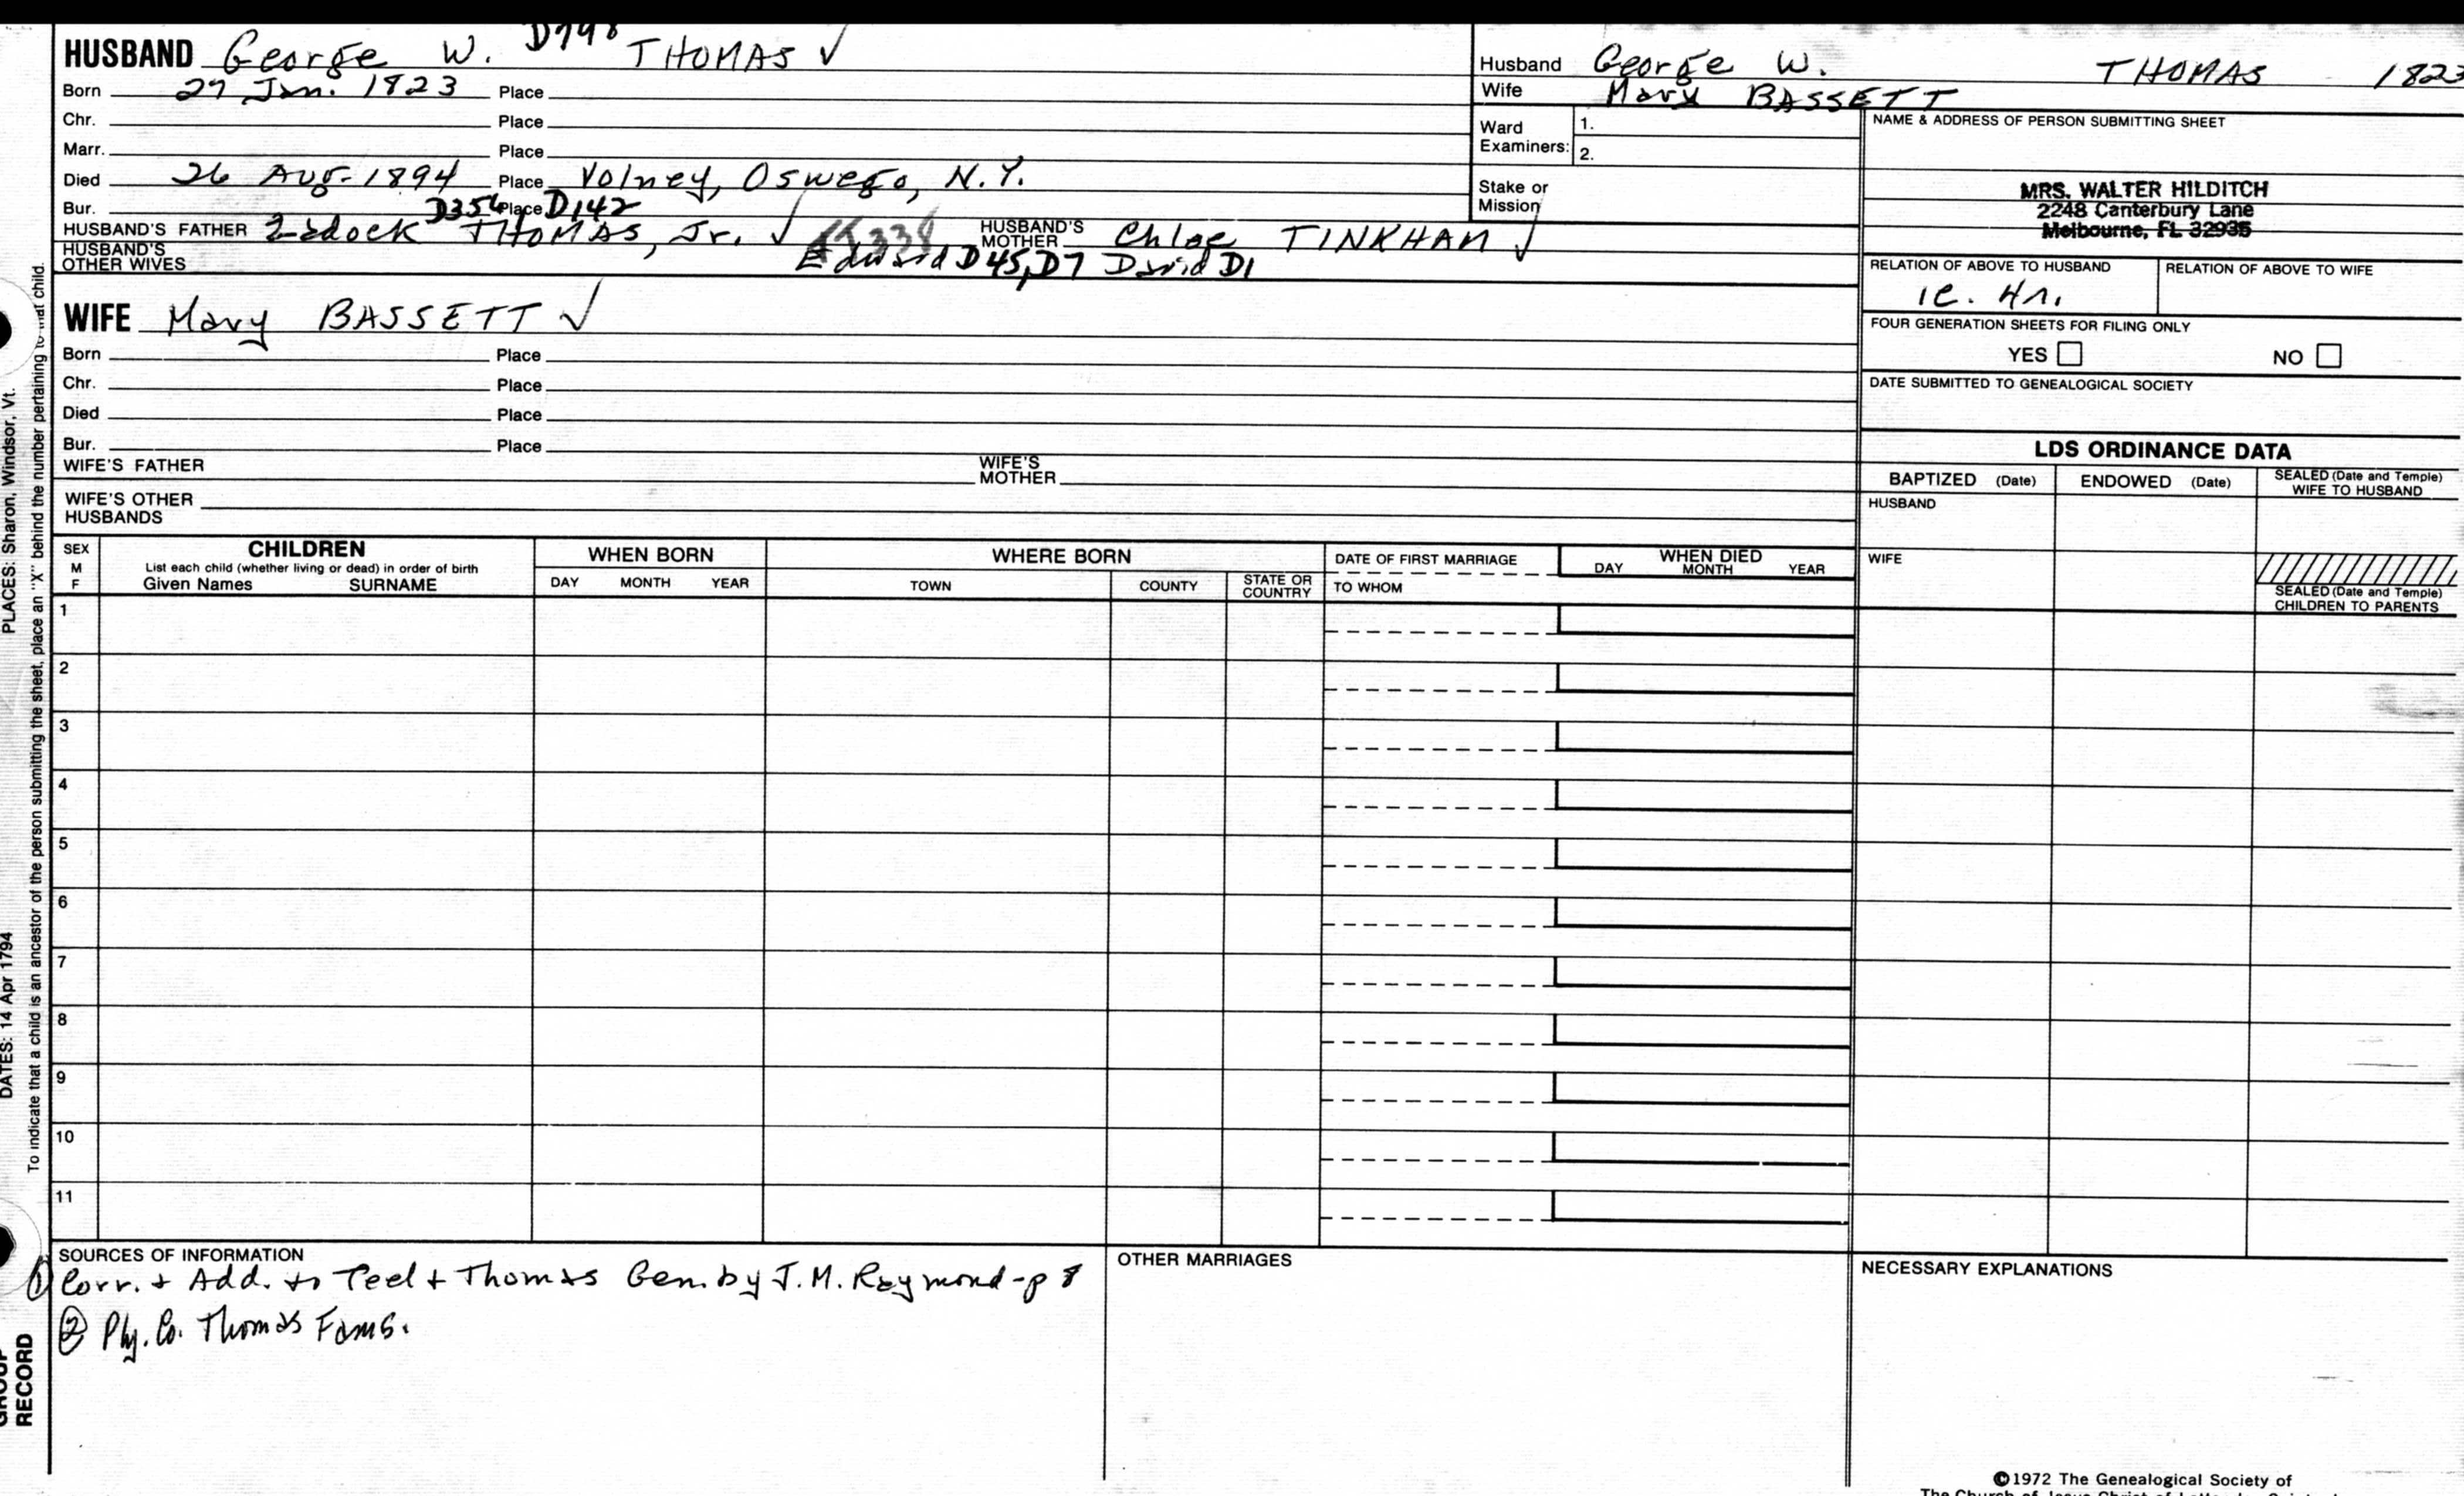 HUSBAND George W. THOMAS ✓
Born 27 Jan. 1823 Place
Chr. Place
Marr. Place
Died 26 Aug. 1894 Place Volney, Oswego, N.Y.
Bur. D354 Place D142
HUSBAND'S FATHER Zadock THOMAS, Jr. ✓ HUSBAND'S MOTHER Chloe TINKHAM ✓
HUSBAND'S OTHER WIVES Edward D45, D7 David D1
WIFE Mary BASSETT ✓
Born Place
Chr. Place
Died Place
Bur. Place
WIFE'S FATHER WIFE'S MOTHER
WIFE'S OTHER HUSBANDS
Husband George W. THOMAS 1823
Wife Mary BASSETT
Ward Examiners: 1.
2.
Stake or Mission
NAME & ADDRESS OF PERSON SUBMITTING SHEET
MRS. WALTER HILDITCH
2248 Canterbury Lane
Melbourne, FL 32935
RELATION OF ABOVE TO HUSBAND RELATION OF ABOVE TO WIFE
1c. 4r.
FOUR GENERATION SHEETS FOR FILING ONLY
YES NO
DATE SUBMITTED TO GENEALOGICAL SOCIETY
LDS ORDINANCE DATA
BAPTIZED (Date) ENDOWED (Date) SEALED (Date and Temple) WIFE TO HUSBAND
HUSBAND
WIFE
SEALED (Date and Temple) CHILDREN TO PARENTS
SEX M F
CHILDREN
List each child (whether living or dead) in order of birth
Given Names SURNAME
WHEN BORN
DAY MONTH YEAR
WHERE BORN
TOWN COUNTY STATE OR COUNTRY
DATE OF FIRST MARRIAGE
TO WHOM
WHEN DIED
DAY MONTH YEAR
1
2
3
4
5
6
7
8
9
10
11
SOURCES OF INFORMATION
① Corr. + Add. to Teel + Thomas Gen. by J.M. Raymond - p 8
② Ply. Co. Thomas Fams.
OTHER MARRIAGES
NECESSARY EXPLANATIONS
©1972 The Genealogical Society of
PLACES: Sharon, Windsor, Vt.
DATES: 14 Apr 1794
To indicate that a child is an ancestor of the person submitting the sheet, place an "X" behind the number pertaining to that child.
GROUP RECORD